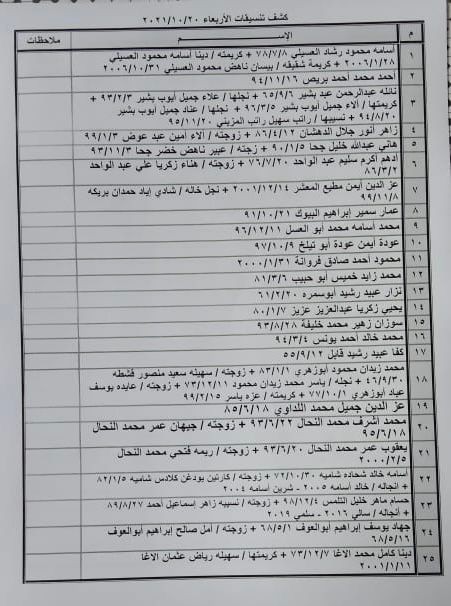 كشف تنسيقات الأربعاء ٢٠٢١/١٠/٢٠
م الإســـم ملاحظات
١ أسامه محمود رشاد العسيلي ٧٨/٧/٨ + كريمته / دينا أسامه محمود العسيلي
٢٠٠٦/١/٢٨ + كريمة شقيقه / بيسان ناهض محمود العسيلي ٢٠٠٦/١٠/٣١
٢ احمد محمد أحمد بريص ٩٤/١١/١٦
٣ نائله عبدالرحمن عيد بشير ٦٥/٩/٦ + نجلها / علاء جميل أيوب بشير ٩٣/٢/٣ +
كريمتها / آلاء جميل أيوب بشير ٩٦/٣/٥ + نجلها / عناد جميل أيوب بشير
٩٤/٨/٢٠ + نسيبها / راتب سهيل راتب المزيني ٩٥/١١/٢٠
٤ زاهر أنور جلال الدهشان ٨٦/٤/١٢ + زوجته / آلاء امين عيد عوض ٩٩/١/٣
٥ هاني عبدالله خليل جحا ٩٠/١/٥ + زجته / عبير ناهض خضر جحا ٩٣/١١/٣
٦ أدهم أكرم سليم عبد الواحد ٧٦/٧/٢٠ + زوجته / هناء زكريا علي عبد الواحد
٨٦/٣/٢
٧ عز الدين أيمن مطيع المعشر ٢٠٠١/١٢/١٤ + نجل خاله / شادي إياد حمدان بريكه
٩٩/١١/٨
٨ عمار سمير إبراهيم البيوك ٩١/١٠/٢١
٩ محمد أسامه محمد أبو العسل ٩٦/١٢/١١
١٠ عودة أيمن عودة أبو تيلخ ٩٧/١٠/٩
١١ محمود أحمد صادق فروانة ٢٠٠٠/١/٣١
١٢ محمد زايد خميس أبو حبيب ٨١/٣/٦
١٣ نزار عبيد رشيد ابوسمره ٦١/٢/٢٠
١٤ يحيى زكريا عبدالعزيز عزيز ٨٠/١/٧
١٥ سوزان زهير محمد خليفة ٩٣/٨/٢٨
١٦ محمد خالد أحمد يونس ٩٤/٣/٤
١٧ كفا عبيد رشيد قابل ٥٥/٩/١٢
١٨ محمد زيدان محمود أبوزهري ٨٣/١/١ + زوجته / سهيله سعيد منصور قشطه
٤٦/٩/٣٠ + نجله / ياسر محمد زيدان محمود ٧٣/١٢/١١ + زوجته / عايده يوسف
عياد أبوزهري ٧٧/١٠/١ + كريمته / عزه ياسر ٩٩/٢/١٥
١٩ عز الدين جميل محمد اللداوي ٨٥/٦/١٨
٢٠ محمد أشرف محمد النحال ٩٣/٦/٢٢ + زوجته / جيهان عمر محمد النحال
٩٥/٦/١٨
٢١ يعقوب عمر محمد النحال ٩٣/٦/٢٠ + زوجته / ريمه فتحي محمد النحال
٢٠٠٠/٢/٥
٢٢ أسامه خالد شحاده شاميه ٧٢/١٠/٣٠ + زوجته / كارتين بودغن كلادس شاميه ٨٢/١/٥
+ انجاله / خالد أسامه ٢٠٠٥ - شرين أسامه ٢٠٠٤
٢٣ حسام ماهر خليل التلمس ٩٨/١٢/٤ + زوجته / نسيبه زاهر إسماعيل أحمد ٨٩/٨/٢٧
+ أنجاله / سالي ٢٠١٦ - سلمى ٢٠١٩
٢٤ جهاد يوسف إبراهيم أبوالعوف ٦٨/٥/١ + زوجته / أمل صالح إبراهيم أبوالعوف
٦٨/٥/١٦
٢٥ دينا كامل محمد الاغا ٧٣/١٢/٧ + كريمتها / سهيله رياض عثمان الاغا
٢٠٠١/١/١١